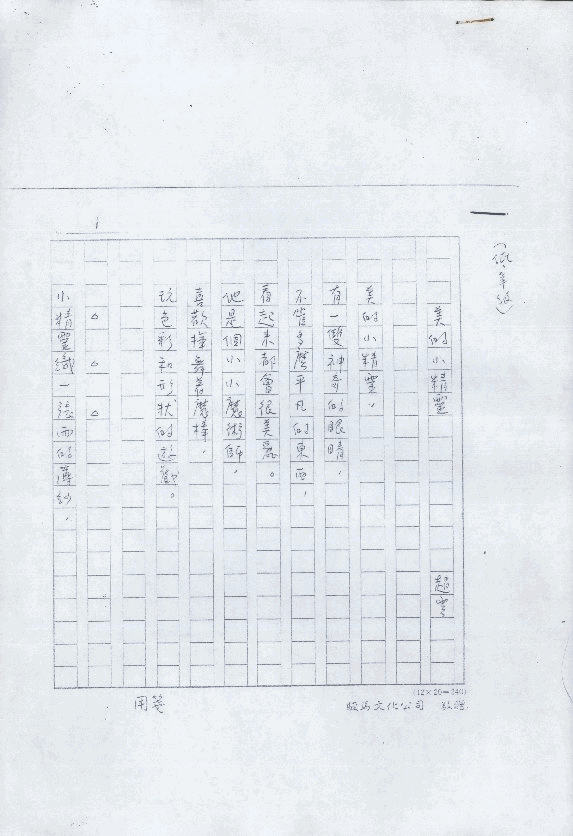 (低年級)
美的小精靈 趙雲
美的小精靈，
有一雙神奇的眼睛，
不管多麼平凡的東西，
看起來都會很美麗。
他是個小小魔術師，
喜歡揮舞著魔棒，
玩色彩和形狀的遊戲。
△ △ △
小精靈織一張雨的薄紗，
1
(12×20=240)
駿馬文化公司 敬贈
用箋